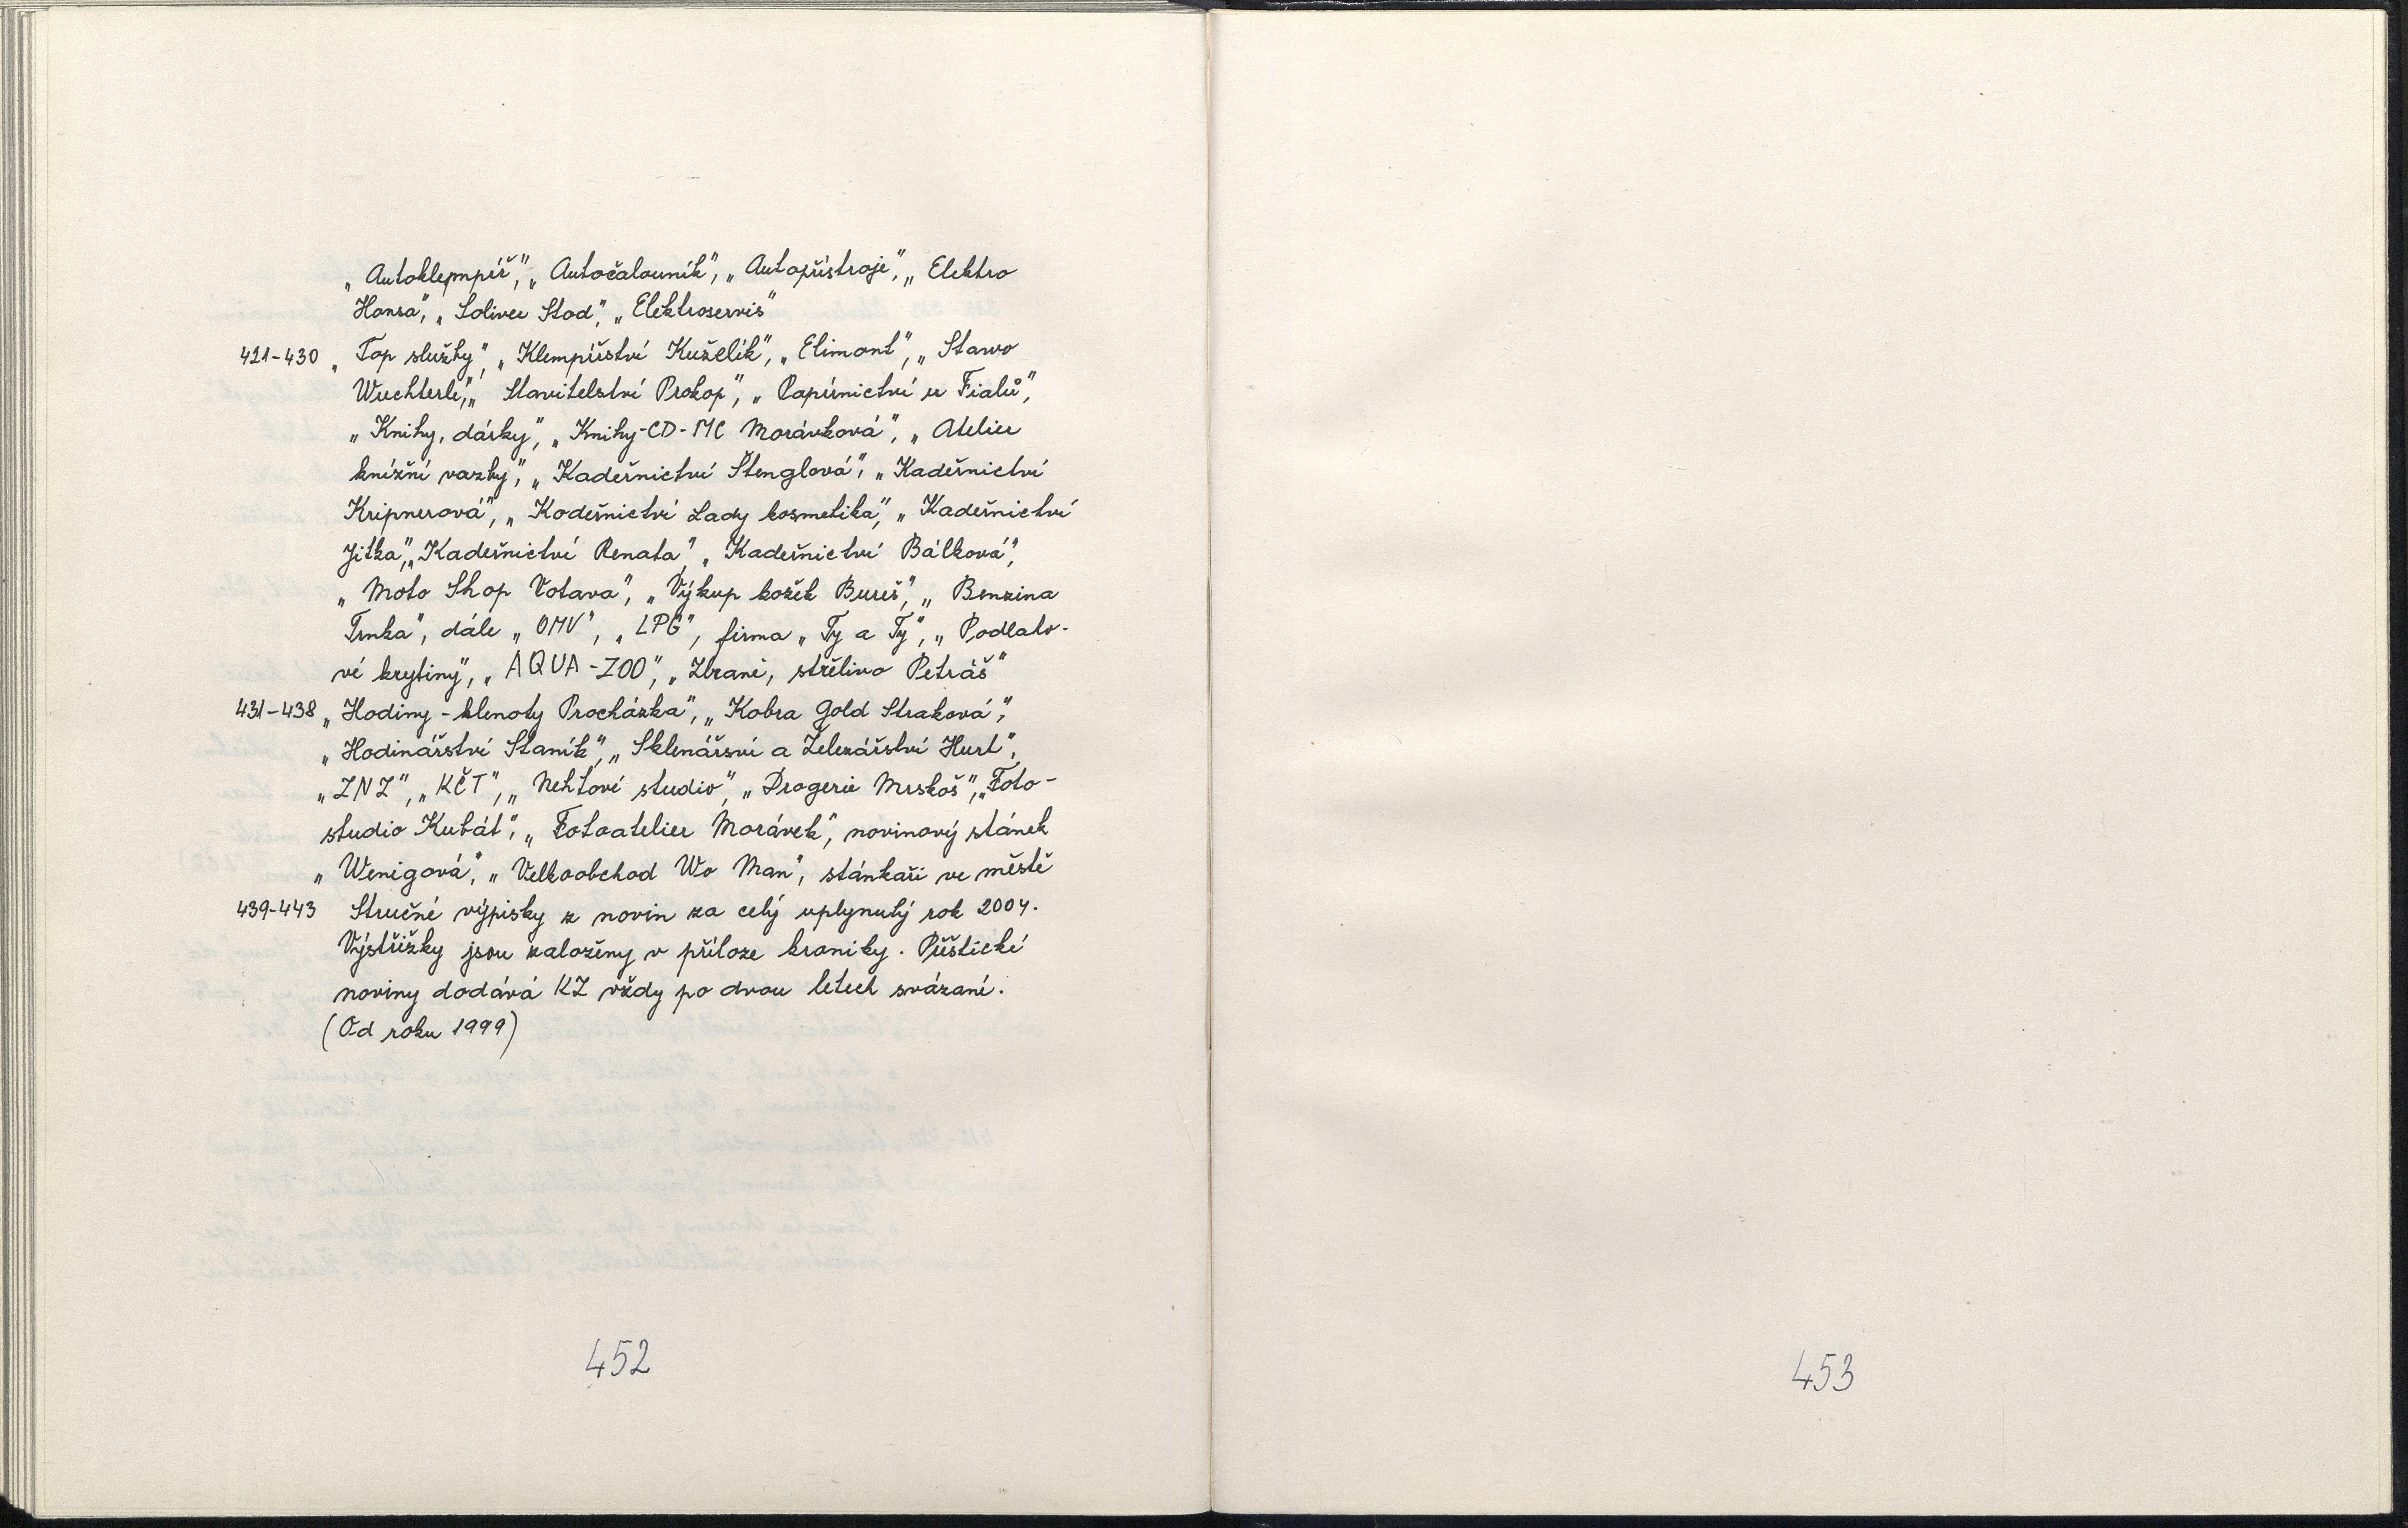 „Autoklempíř“, „Autočalouník“, „Autopřístroje“, „Elektro
Honsa“, „Soliver Stod“, „Elektroservis“
421-430 „Top služby“, „Klempířství Kuželík“, „Elimont“, „Stavo
Wuchterle“, „Stavitelství Prokop“, „Papírnictví u Fialů“,
„Knihy, dárky“, „Knihy-CD-MC Morávková“, „Atelier
knižní vazby“, „Kadeřnictví Štenglová“, „Kadeřnictví
Kripnerová“, „Kodeřnictví Lady kosmetika“, „Kadeřnictví
Jitka“, „Kadeřnictví Renata“, „Kadeřnictví Bálková“,
„Moto Shop Votava“, „Výkup kožek Bureš“, „Benzina
Trnka“, dále „OMV“, „LPG“, firma „Ty a Ty“, „Podlaho-
vé krytiny“, „AQUA-ZOO“, „Zbraně, střelivo Petráš“
431-438 „Hodiny - klenoty Procházka“, „Kobra Gold Straková“,
„Hodinářství Staník“, „Sklenářsví a Železářství Hurt“,
„ZNZ“, „KČT“, „Nehtové studio“, „Drogerie Mrskoš“, „Foto-
studio Kubát“, „Fotoatelier Morávek“, novinový stánek
„Wenigová“, „Velkoobchod Wo Man“, stánkaři ve městě
439-443 Stručné výpisky z novin za celý uplynutý rok 2004.
Výstřižky jsou založeny v příloze kroniky. Přeštické
noviny dodává KZ vždy po dvou letech svázané.
(Od roku 1999)
452
453